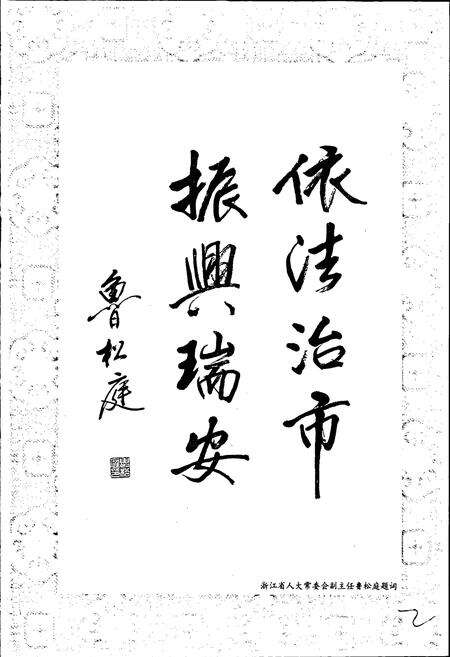 依法治市
振興瑞安
魯松庭
浙江省人大常委会副主任鲁松庭题词